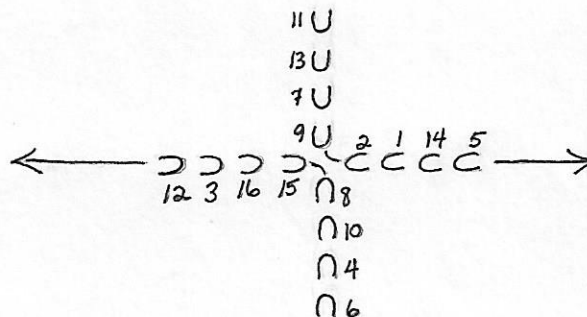 11
13
7
9
2 1 14 5
12 3 16 15
8
10
4
6